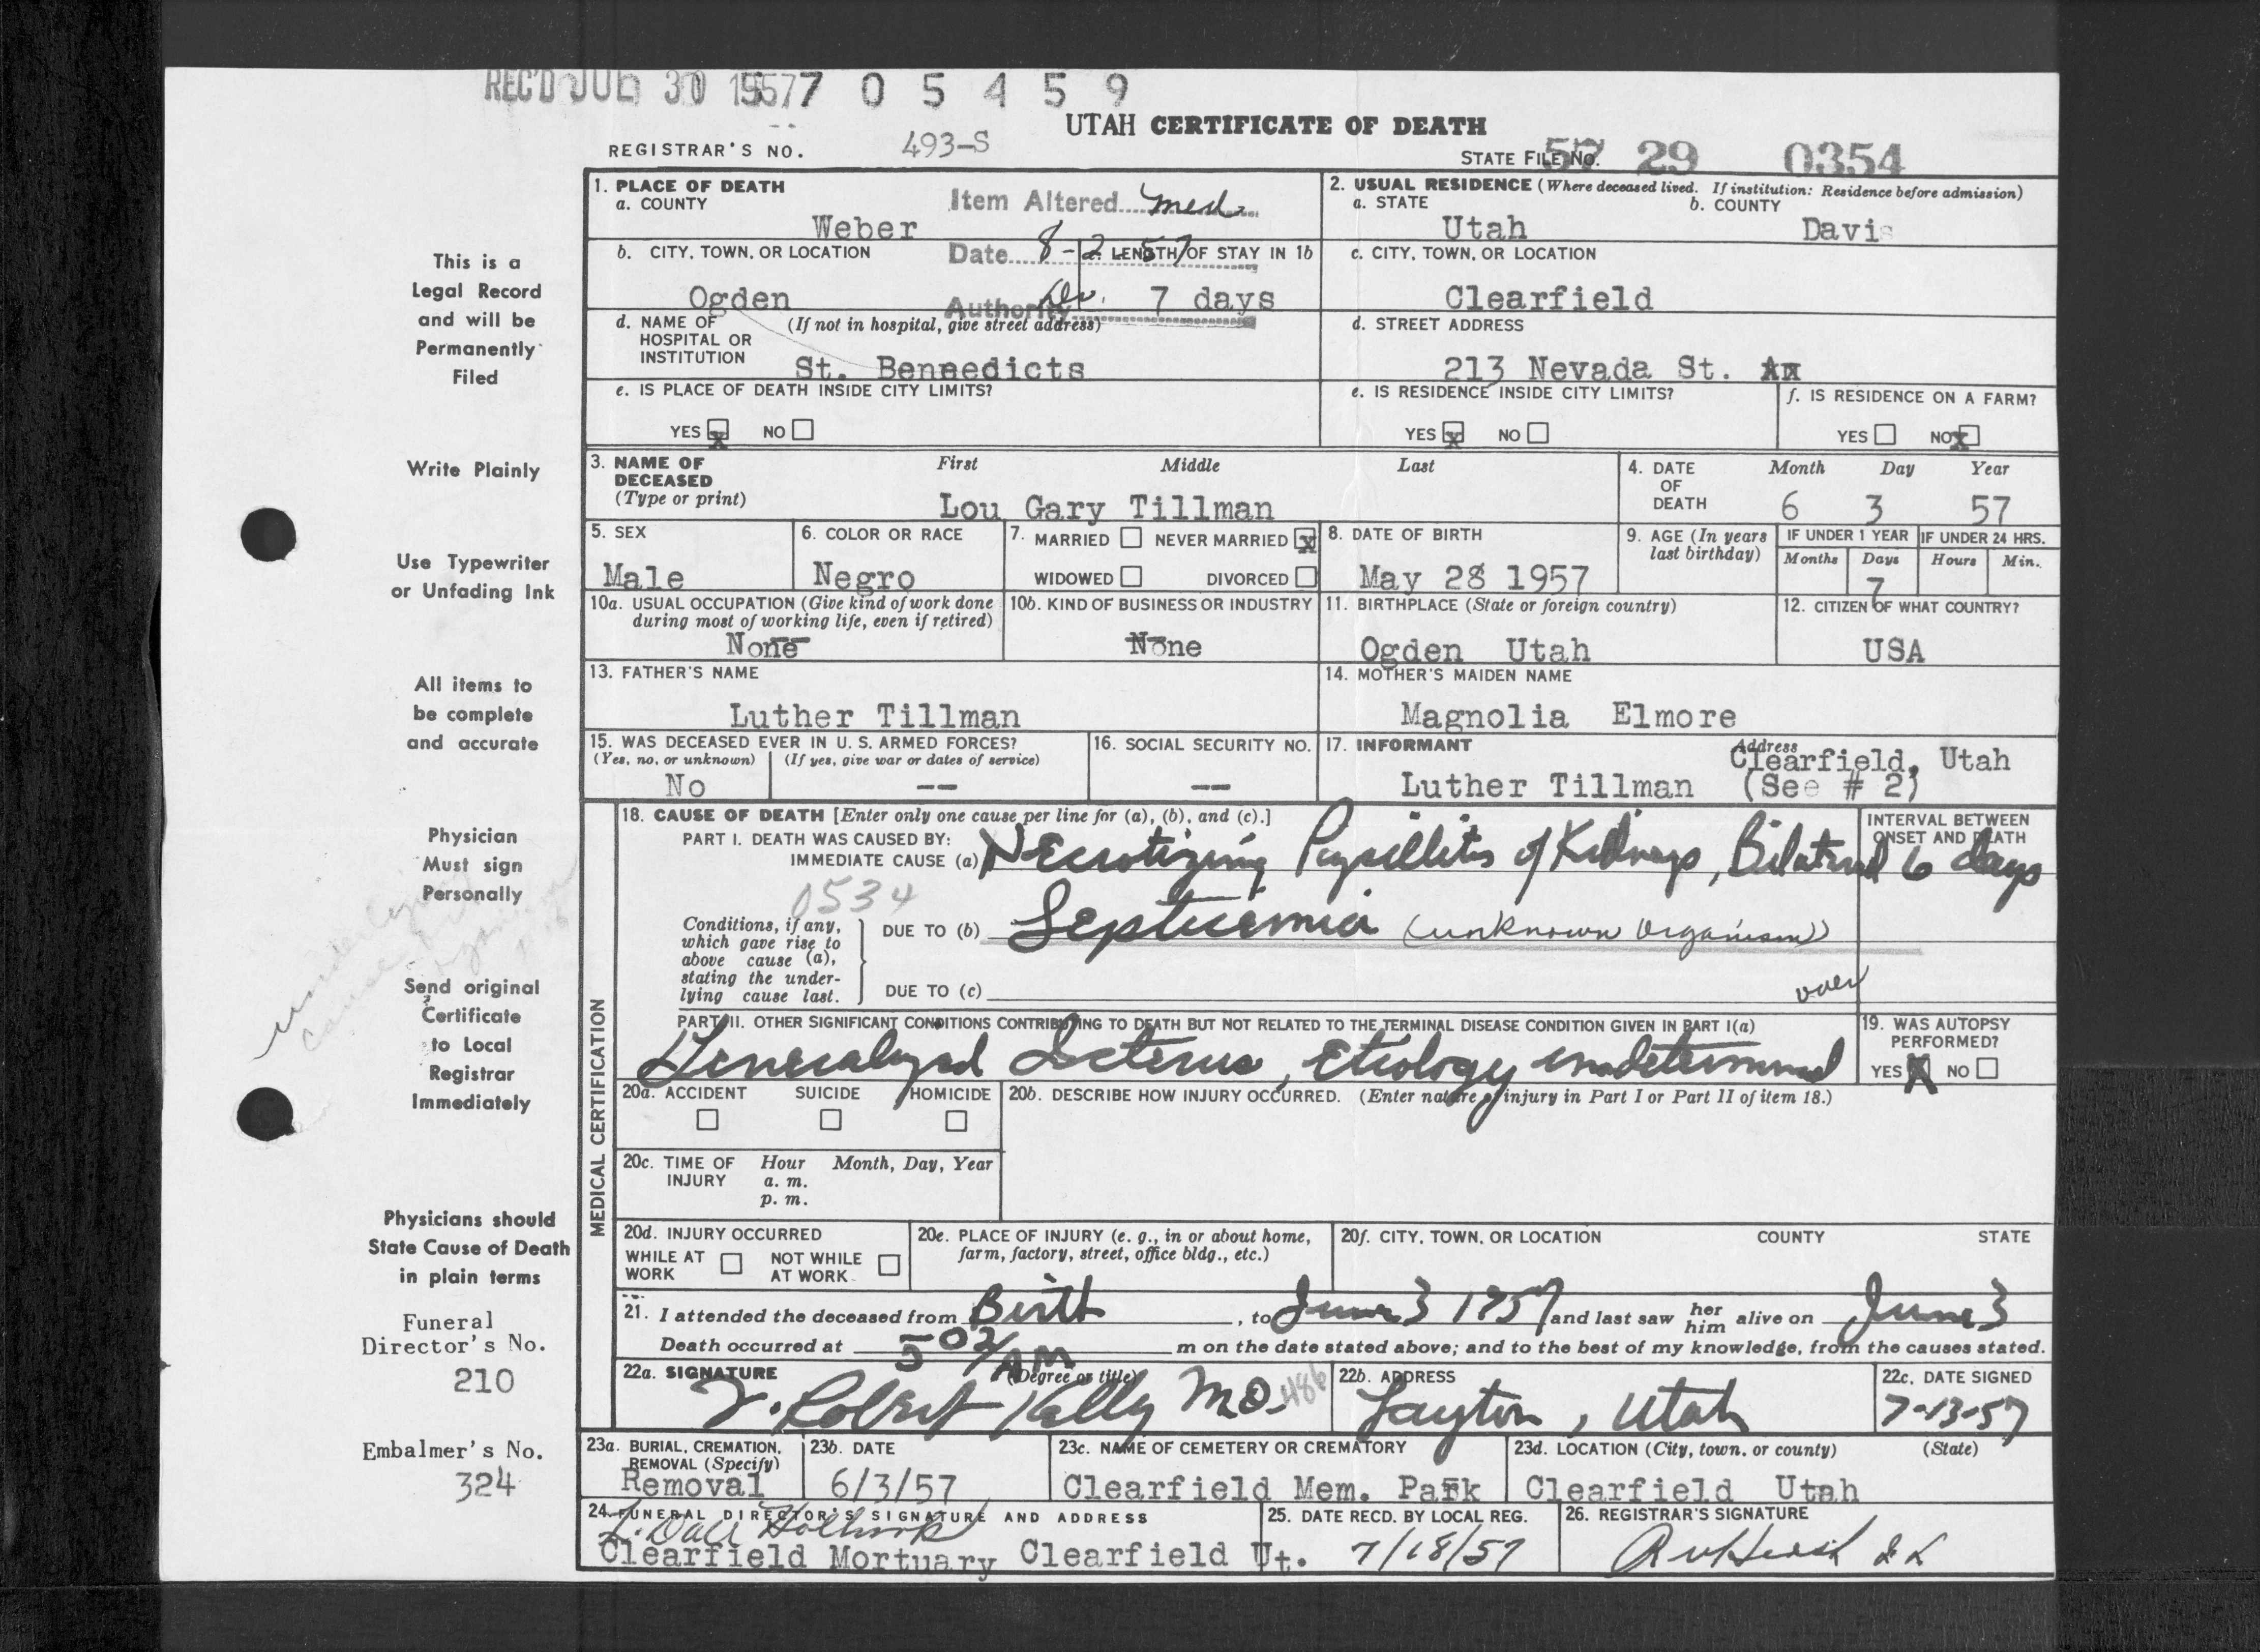 REC'D JUL 30 1957 7 0 5 4 5 9
UTAH CERTIFICATE OF DEATH
REGISTRAR'S NO. 493-S
STATE FILE NO. 57 29 0354
1. PLACE OF DEATH
a. COUNTY
Weber
Item Altered med
2. USUAL RESIDENCE (Where deceased lived. If institution: Residence before admission)
a. STATE b. COUNTY
Utah Davis
b. CITY, TOWN, OR LOCATION
Ogden
Date 8-2-57
Authority Dr.
c. LENGTH OF STAY IN 1b
7 days
c. CITY, TOWN, OR LOCATION
Clearfield
d. NAME OF HOSPITAL OR INSTITUTION (If not in hospital, give street address)
St. Bennedicts
d. STREET ADDRESS
213 Nevada St.
e. IS PLACE OF DEATH INSIDE CITY LIMITS?
YES x NO
e. IS RESIDENCE INSIDE CITY LIMITS?
YES x NO
f. IS RESIDENCE ON A FARM?
YES NO x
3. NAME OF DECEASED (Type or print)
First Middle Last
Lou Gary Tillman
4. DATE OF DEATH
Month Day Year
6 3 57
5. SEX
Male
6. COLOR OR RACE
Negro
7. MARRIED NEVER MARRIED x
WIDOWED DIVORCED
8. DATE OF BIRTH
May 28 1957
9. AGE (In years last birthday)
IF UNDER 1 YEAR IF UNDER 24 HRS.
Months Days Hours Min.
7
10a. USUAL OCCUPATION (Give kind of work done during most of working life, even if retired)
None
10b. KIND OF BUSINESS OR INDUSTRY
None
11. BIRTHPLACE (State or foreign country)
Ogden Utah
12. CITIZEN OF WHAT COUNTRY?
USA
13. FATHER'S NAME
Luther Tillman
14. MOTHER'S MAIDEN NAME
Magnolia Elmore
15. WAS DECEASED EVER IN U. S. ARMED FORCES?
(Yes, no, or unknown) (If yes, give war or dates of service)
No --
16. SOCIAL SECURITY NO.
--
17. INFORMANT Address
Clearfield, Utah
Luther Tillman (See # 2)
MEDICAL CERTIFICATION
18. CAUSE OF DEATH [Enter only one cause per line for (a), (b), and (c).]
PART I. DEATH WAS CAUSED BY:
IMMEDIATE CAUSE (a) Necrotizing Papillitis of Kidneys, Bilateral
INTERVAL BETWEEN ONSET AND DEATH
6 days
0534
Conditions, if any, which gave rise to above cause (a), stating the underlying cause last.
DUE TO (b) Septicemia (unknown organism)
DUE TO (c)
over
PART II. OTHER SIGNIFICANT CONDITIONS CONTRIBUTING TO DEATH BUT NOT RELATED TO THE TERMINAL DISEASE CONDITION GIVEN IN PART I(a)
Generalized Icterus, Etiology undetermined
19. WAS AUTOPSY PERFORMED?
YES X NO
20a. ACCIDENT SUICIDE HOMICIDE
20b. DESCRIBE HOW INJURY OCCURRED. (Enter nature of injury in Part I or Part II of item 18.)
20c. TIME OF INJURY Hour Month, Day, Year
a. m.
p. m.
20d. INJURY OCCURRED
WHILE AT WORK NOT WHILE AT WORK
20e. PLACE OF INJURY (e. g., in or about home, farm, factory, street, office bldg., etc.)
20f. CITY, TOWN, OR LOCATION COUNTY STATE
21. I attended the deceased from Birth, to June 3 1957 and last saw her him alive on June 3
Death occurred at 5 02 AM m on the date stated above; and to the best of my knowledge, from the causes stated.
22a. SIGNATURE (Degree or title)
Robert Kelly M.D. 486
22b. ADDRESS
Layton, Utah
22c. DATE SIGNED
7-13-57
23a. BURIAL, CREMATION, REMOVAL (Specify)
Removal
23b. DATE
6/3/57
23c. NAME OF CEMETERY OR CREMATORY
Clearfield Mem. Park
23d. LOCATION (City, town, or county) (State)
Clearfield Utah
24. FUNERAL DIRECTOR'S SIGNATURE AND ADDRESS
Clearfield Mortuary Clearfield Ut.
25. DATE RECD. BY LOCAL REG.
7/18/57
26. REGISTRAR'S SIGNATURE
This is a
Legal Record
and will be
Permanently
Filed
Write Plainly
Use Typewriter
or Unfading Ink
All items to
be complete
and accurate
Physician
Must sign
Personally
Send original
Certificate
to Local
Registrar
Immediately
Physicians should
State Cause of Death
in plain terms
Funeral
Director's No.
210
Embalmer's No.
324